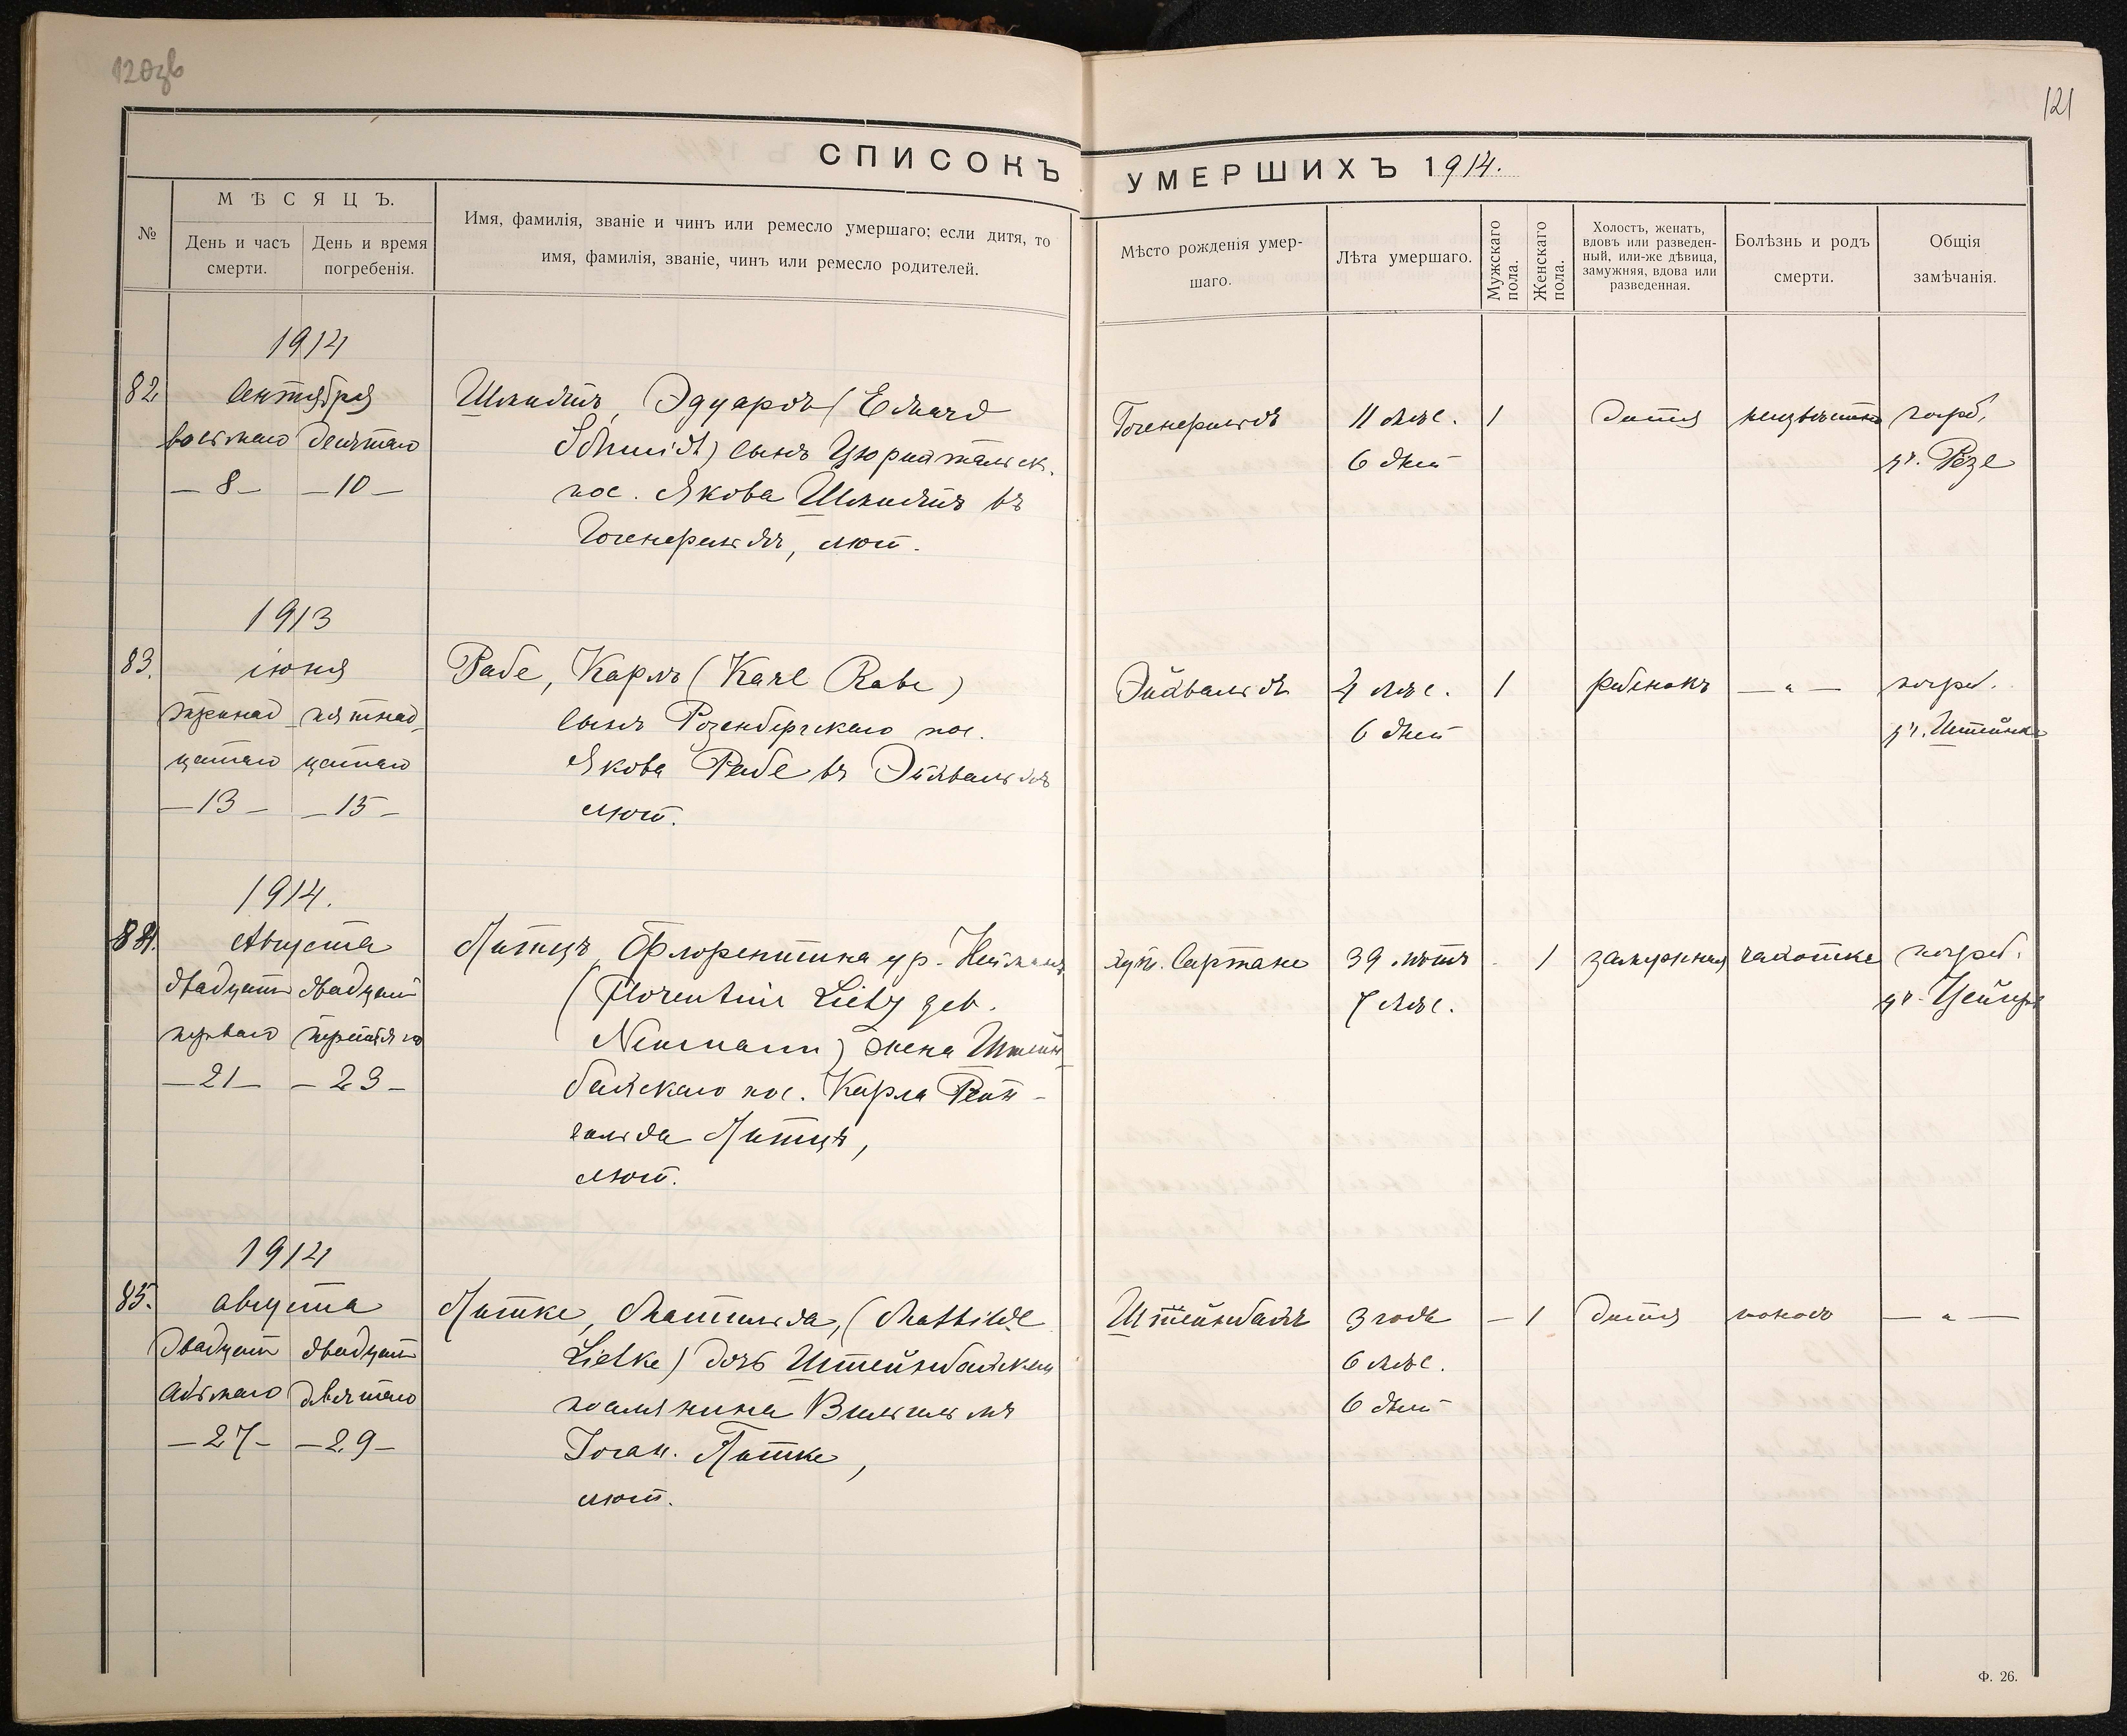 120зв
121
СПИСОКЪ УМЕРШИХЪ 1914.
№
МѢСЯЦЪ.
День и часъ смерти.
День и время погребенія.
Имя, фамилія, званіе и чинъ или ремесло умершаго; если дитя, то
имя, фамилія, званіе, чинъ или ремесло родителей.
Мѣсто рожденія умер-
шаго.
Лѣта умершаго.
Мужскаго пола.
Женскаго пола.
Холостъ, женатъ,
вдовъ или разведен-
ный, или-же дѣвица,
замужняя, вдова или
разведенная.
Болѣзнь и родъ
смерти.
Общія
замѣчанія.
1914
82 Сентября
восьмаго десятаго
— 8 — — 10 —
Шмидтъ, Эдуардъ (Eduard
Schmidt) сынъ Цюрихтальск.
пос. Якова Шмидтъ въ
Гохенфельдъ, лют.
Гохенфельдъ
11 мѣс.
6 дней
1
дитя
неизвѣстно
погреб.
уч. Резе
1913
83. іюня
тринад пятнад
цатаго цатаго
— 13 — — 15 —
Рабе, Карлъ (Karl Rabe)
сынъ Розенбергскаго пос.
Якова Рабе въ Эйхвальдъ
лют.
Эйхвальдъ
4 мѣс.
6 дней
1
ребенокъ
— „ —
погреб.
уч. Штейнке
1914.
84. Августа
двадцать двадцать
перваго третьяго
— 21 — — 23 —
Литцъ, Флорентина ур. Нейманъ
(Florentine Lietz geb.
Neumann) жена Штейн
бахскаго пос. Карла Рейн-
гольда Литцъ,
лют.
хут. Сартана
39 лѣтъ
7 мѣс.
1
замужняя
чахотка
погреб.
уч.
1914
85. августа
двадцать двадцать
седьмаго девятаго
— 27 — — 29 —
Литке, Матильда, (Mathilde
Lietke) дочь Штейнбахскаго
поселянина Вильгельмъ
Іоган. Литке,
лют.
Штейнбахъ
3 года
6 мѣс.
6 дней
— 1
дитя
поносъ
— „ —
Ф. 26.